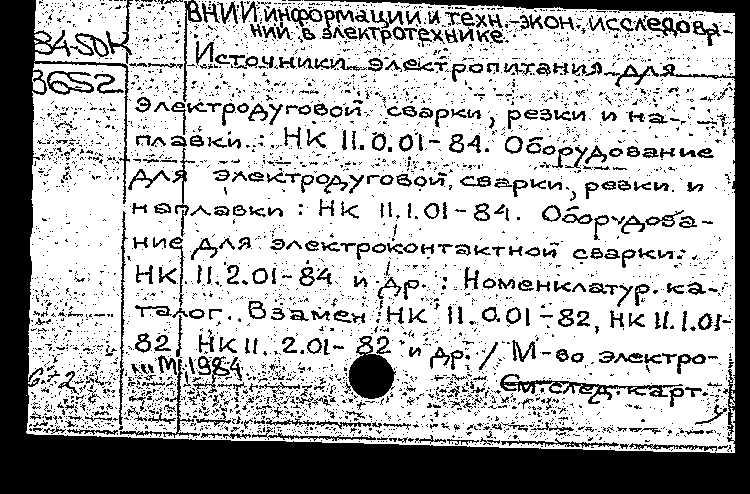 ВНИИ информации и техн.-экон. исследова-
ний в электротехнике.
84-50К
Источники электропитания для
3652
электродуговой сварки, резки и на-
плавки : НК 11.0.01-84. Оборудование
для электродуговой сварки, резки и
наплавки : НК 11.1.01-84. Оборудова-
ние для электроконтактной сварки:
НК 11.2.01-84 и др. : Номенклатур. ка-
талог. Взамен НК 11.0.01-82, НК 11.1.01-
82, НК 11.2.01-82 и др. / М-во электро-
М, 1984
См. след. карт.